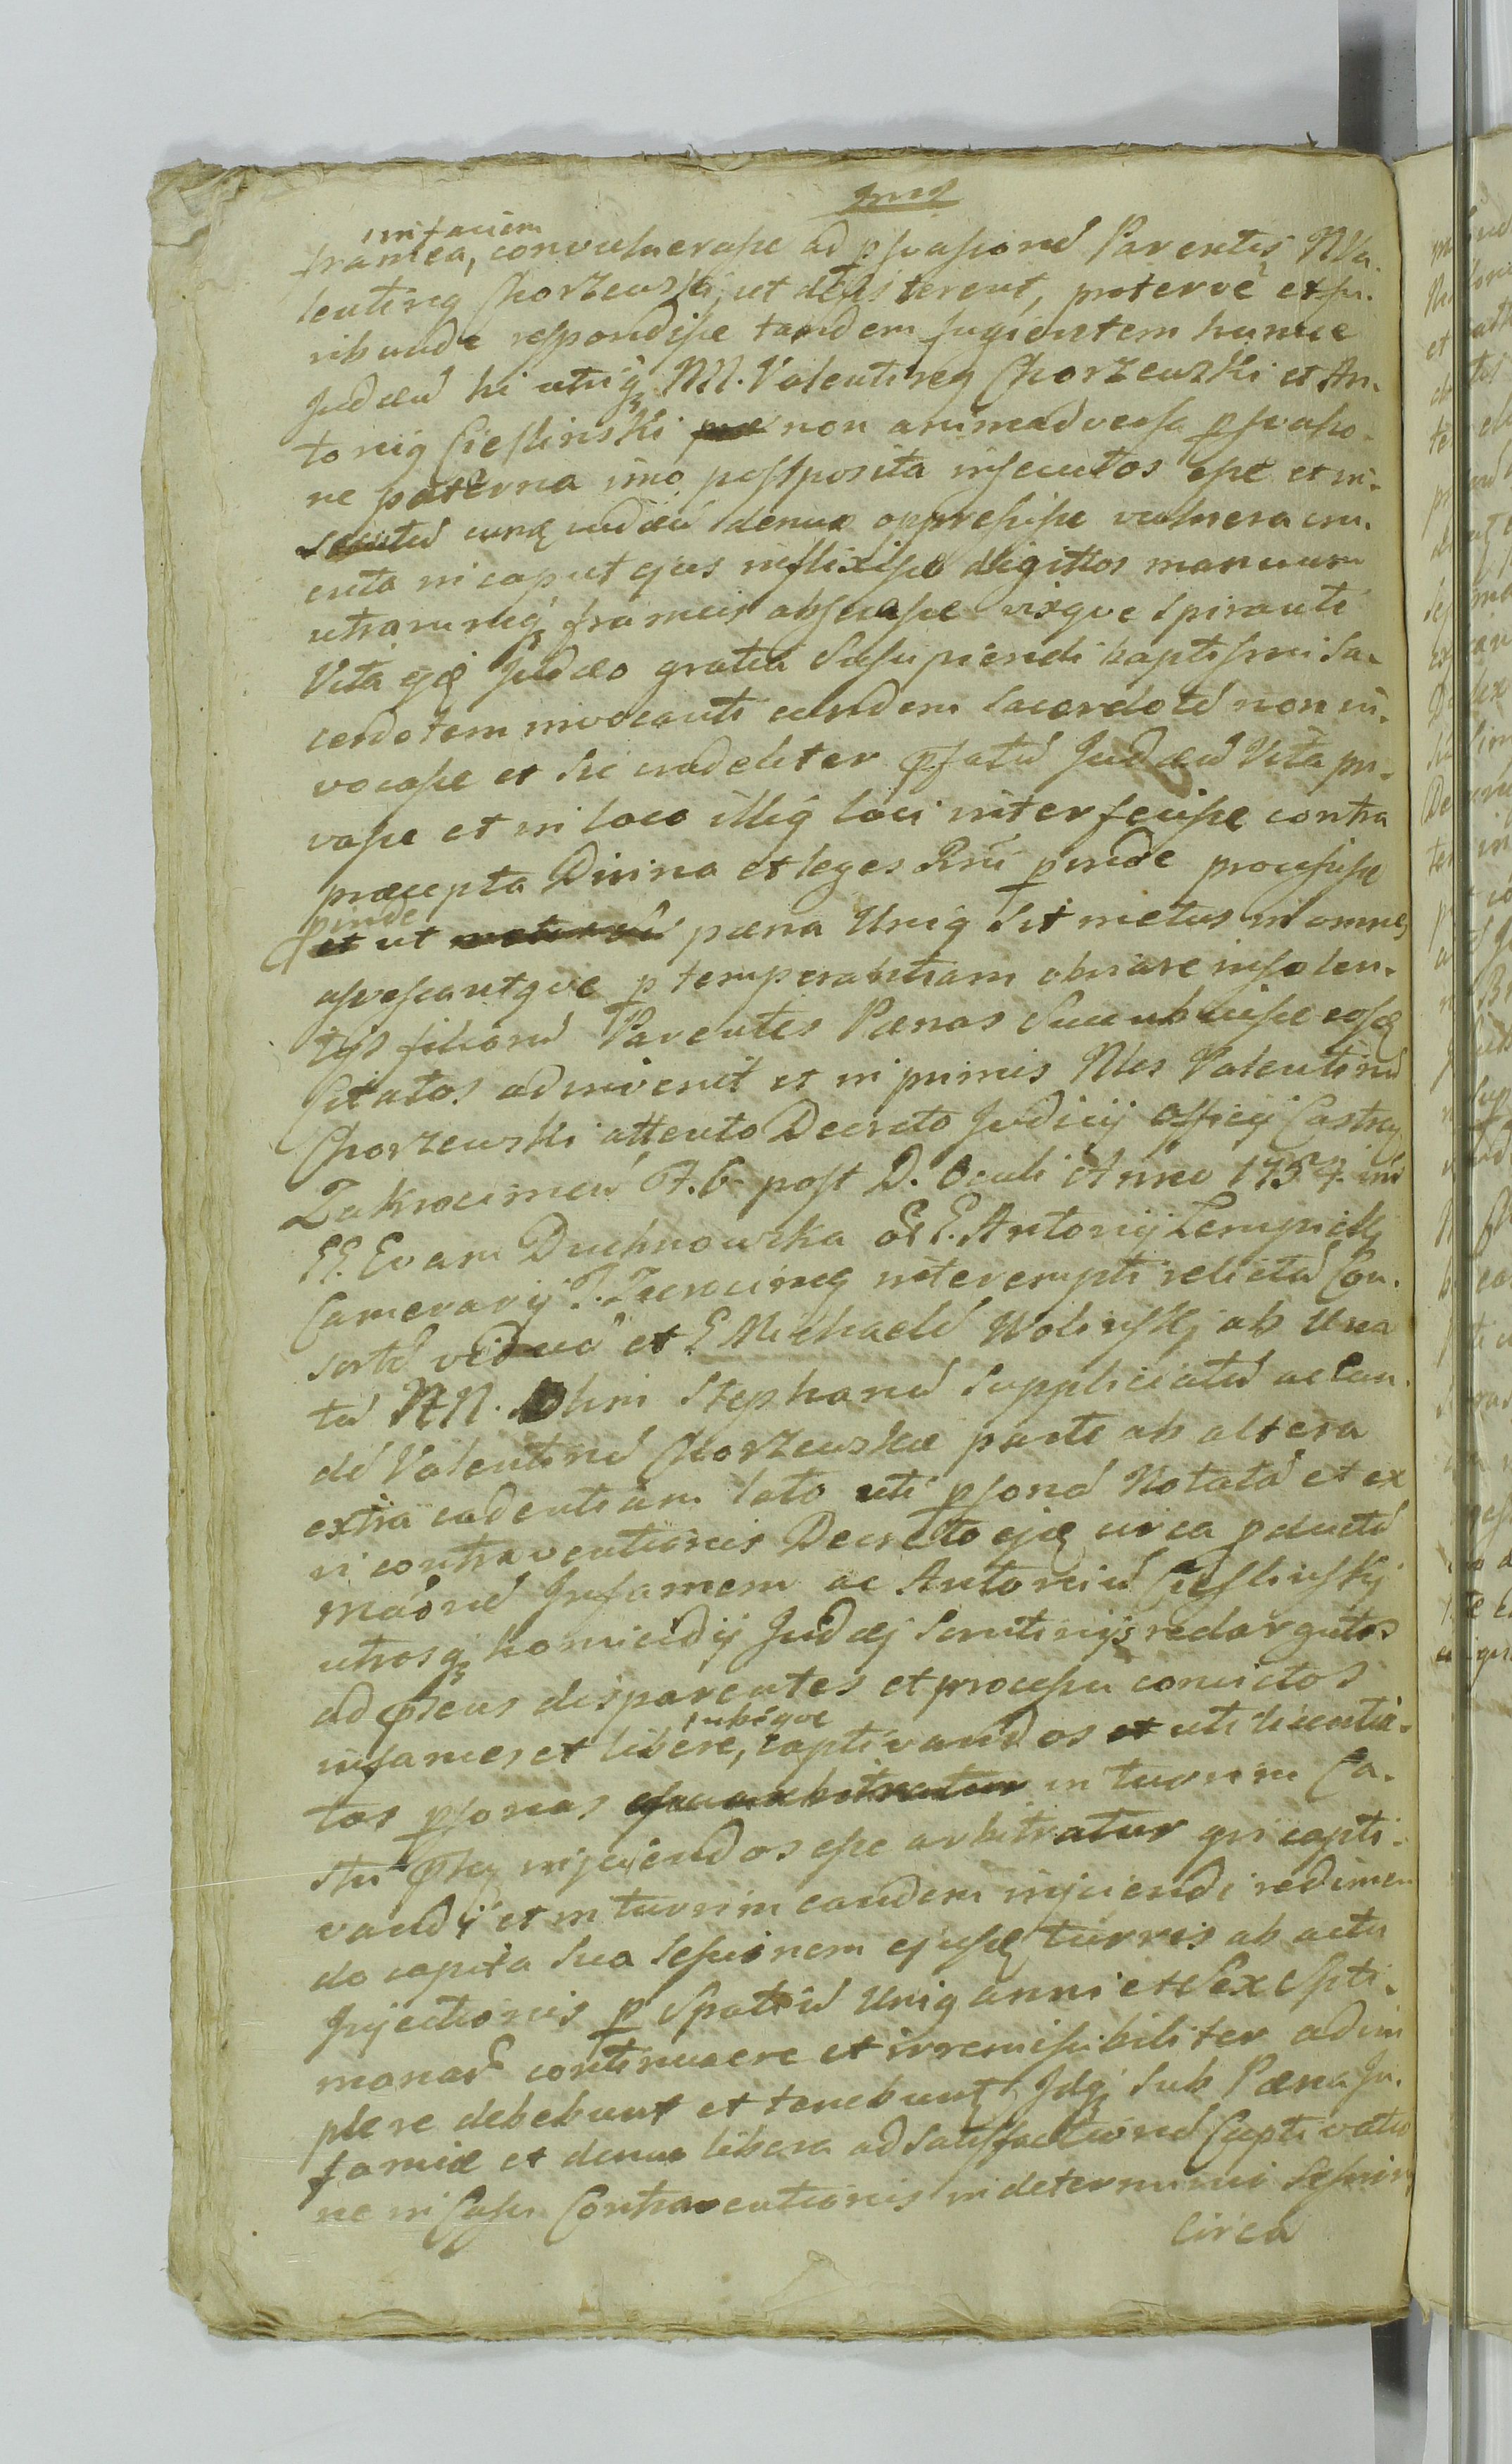 in faciem
framea, convulnerasse ad psvasioné Parentis NVa.
lentinq Chorzewski, ut desisterent, proterve et fu.
ribunde respondisse tandem fugientem hunce
Judæú hi utriq̃ NN. Valentinq Chorzewski et An.
toniq Cieslinski non animadversa psvasio.
ne paterna imo postposita insecutos esse et in.
secutú eund Judæú denuo oppressisse vulnera cru.
enta in caput ejus inflixisse digittos manuum
utrarumq̃ frameis abscidisse vixque spiranti
Vita ejd Judæo gratia Susupiendi baptismi Sa.
cerdotem invocanti eundem Sacerdoté non in.
vocasse et Sic crudeliter pfatú Judæú Vita pri.
vasse et in loco illiq loci interfecisse contra
præcepta Divina et leges Rni pinde processisse
pinde
ut pæna Uniq Sit metus in omnes
asvescantque p temperantiam obviare insolen.
tijs filiorú Parentes Pænas Succubuisse eosd
Citatos adinvenit et in primis Nles Valentinú
Chorzewski attento Decreto Judicij Officij Castren
Zakrocimen F. 6. post D. Oculi Anno 1754. int
EE. Evam Duchnowska E. Antonij Lempicki
Camerarij T. Zucocimen interempti relictá Con.
sorté viduá et E Michaelé Wolinski ab Una
tú NN. olim Stephanú Suppliciatú ac Eun.
dé Valentinú Chorzewski parte ab altera
extra cadentiam lato uti psoná Notatá et ex
vi contraventionis Decreto ejd circa pductú
Infamem ac Antoniú Cieslinski
utrosq̃ homicidij Judæj Scrutinijs redargutos
ad pseus disparentes et processu convictos
ubique
infames et libere, captivandos et uti licentia.
tas psonas in turrim Ca.
stri injiciendos esse arbitratur qui capti.
vandi et in turrim eandem injiciendi redimen
do capita Sua Sessionem ejusd turris ab actu
Injectionis p Spatiú Uniq anni et Sex Spti.
manarú continuare et irremissibiliter adim
plere debebunt et tenebunt Idq̃ Sub Pæna In.
famiæ et denuo libera ad Satisfactioné Captivatio
ne in Casu Contraventionis in determini Session
circa